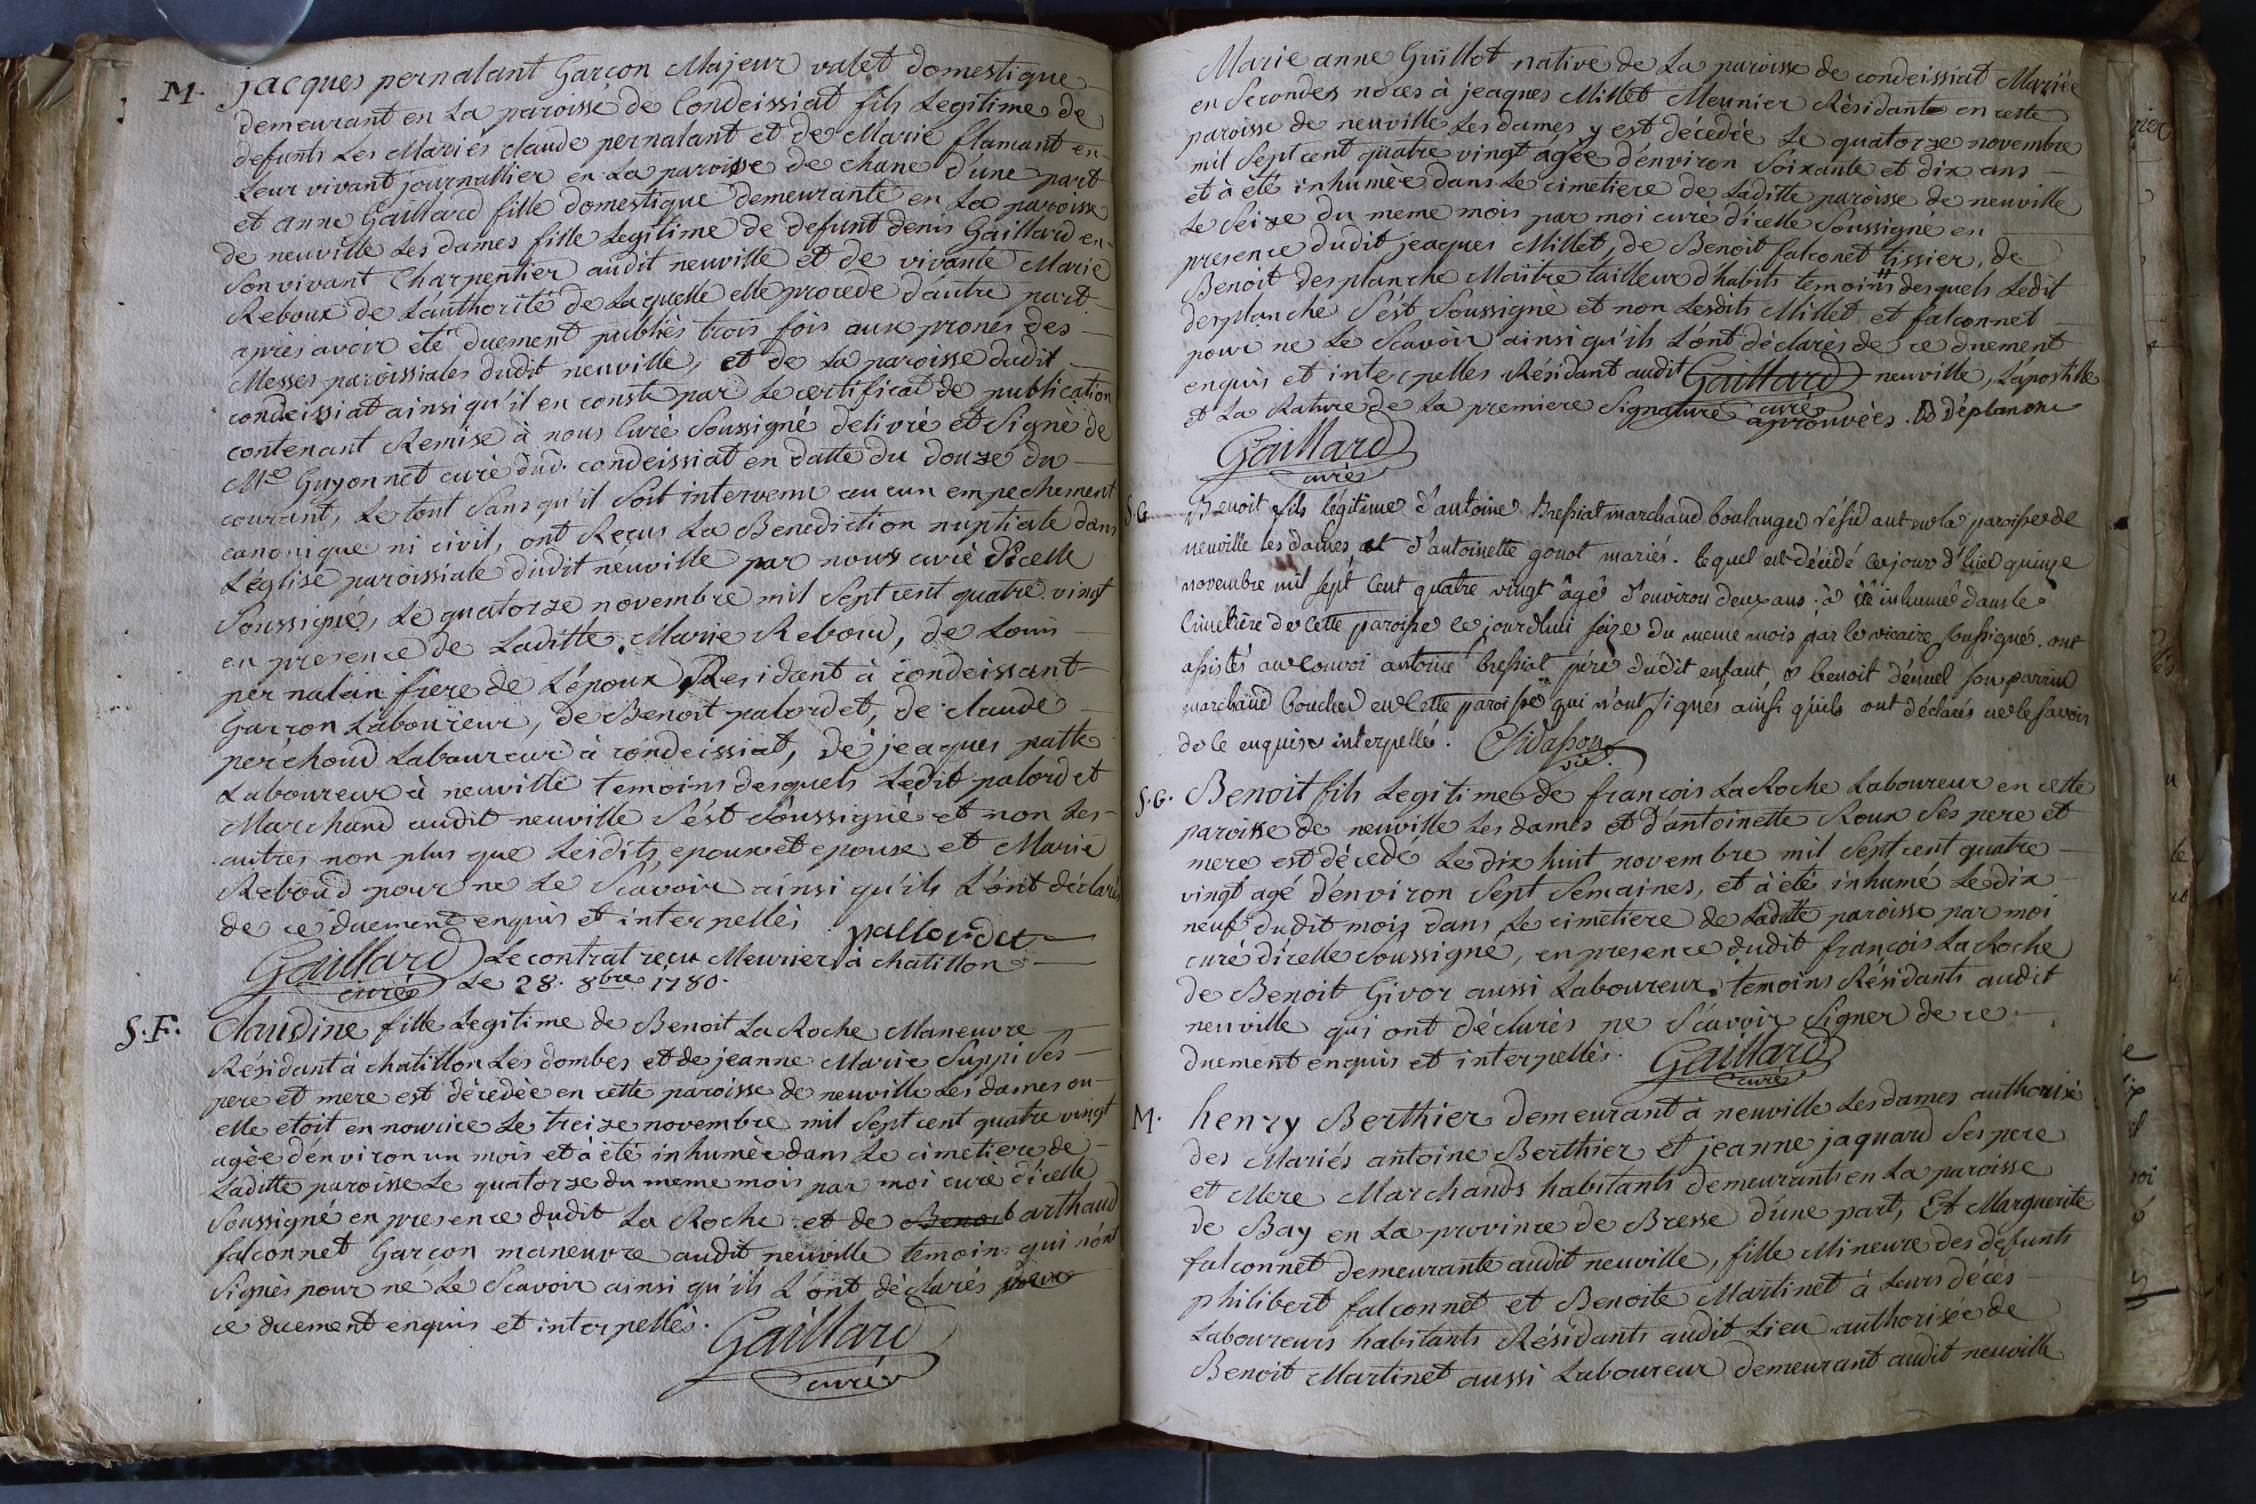 M. jacques pernalant Garçon Majeur valet domestique
demeurant en La paroisse de Condeissiat fils Legitime de
defunts Les Mariés claude pernalant et de Marie flamant en
Leur vivant journallier en La paroisse de chane d'une part
et anne Gaillard fille domestique demeurante en La paroisse
de neuville Les dames fille Legitime de defunt denis Gaillard en
Son vivant Charpentier audit neuville et de vivante Marie
Reboux de L'authorité de Laquelle elle procede d'autre part
après avoir été duement publiés trois fois aux prones des
Messes paroissiales dudit neuville, et de La paroisse dudit
condeissiat ainsi qu'il en conste par Le certificat de publication
contenant Remise à nous Curé Soussigné delivré et Signé de
Mre Guyonnet curé dud. condeissiat en datte du douze du
courant, Le tout Sans qu'il Soit intervenu aucun empechement
canonique ni civil, ont Reçus La Benediction nuptiale dans
L'église paroissiale dudit neuville par nous curé d'icelle
Soussigné, Le quatorze novembre mil Sept cent quatre vingt
en presence de Laditte Marie Reboud, de Louis
pernalain frere de L'époux Residant à condeissant
Garçon Laboureur, de Benoit palordet, de claude
perchoud Laboureur à condeissiat, de jeaques patte
Laboureur à neuville temoins desquels Ledit palordet
Marchand audit neuville S'est Soussigné et non Les
autres non plus que Lesdits epoux et epouse et Marie
Reboud pour ne Le Scavoir ainsi qu'ils L'ont déclarés
de ce duement enquis et interpellés pallordet
Gaillard curé Le contrat reçu Meunier à chatillon
Le 28. 8bre 1780.
S.F. Claudine fille Legitime de Benoit La Roche Maneuvre
Résidant à chatillon Les dombes et de jeanne Marie Suppi Ses
pere et mere est décedée en cette paroisse de neuville Les dames ou
elle etoit en nourice Le treize novembre mil Sept cent quatre vingt
agée d'environ un mois et à été inhumée dans Le cimetiere de
Laditte paroisse Le quatorze du meme mois par moi curé d'icelle
Soussigné en presence dudit La Roche et de Benoit barthaud
falconnet Garçon maneuvre audit neuville temoins qui n'ont
Signés pour ne Le Scavoir ainsi qu'ils L'ont déclarés
ce duement enquis et interpellés.
Gaillard
curé
Marie anne Guillot native de La paroisse de condeissiat Mariée
en Secondes noces à jeaques Millet Meunier Résidante en cette
paroisse de neuville Les dames y est décédée Le quatorze novembre
mil Sept cent quatre vingt agée d'environ Soixante et dix ans
et à été inhumée dans Le cimetiere de Laditte paroisse de neuville
Le Seize du meme mois par moi curé d'icelle Soussigné en
presence dudit jeaques Millet, de Benoit falconet tissier, de
Benoit desplanche Maitre tailleur d'habits temoins # desquels Ledit
desplanche S'est Soussigné et non Lesdits Millet et falconnet
pour ne Le Scavoir ainsi qu'ils L'ont déclarés de ce duement
enquis et interpelles Résidant audit Gaillard neuville, L'apostille
et La Rature de La premiere Signature curé aprouvées. B déplanche
Gaillard
curé
S.G. Benoit fils légitime d'antoine Bressiat marchand boulanger résidant en la paroisse de
neuville les dames et d'antoinette gonot mariés. lequel est décédé lejour d'hier quinze
novembre mil sept cent quatre vingt âgé d'environ deux ans; à été inhumé dans le
Cimetière de cette paroisse ce jourdhui seize du meme mois par le vicaire soussigné. ont
assistés au convoi antoine bressiat père dudit enfant, & benoit dénuel son parrin
marchand boucher en cette paroisse qui n'ont signés ainsi qu'ils ont déclarés ne le savoir
de ce enquis & interpellé. Chidasson
vic.
S.G. Benoit fils Legitime de françois La Roche Laboureur en cette
paroisse de neuville Les dames et d'antoinette Roux Ses pere et
mere est décedé Le dix huit novembre mil Sept cent quatre
vingt agé d'environ Sept Semaines, et à été inhumé Le dix
neuf dudit mois dans Le cimetiere de Laditte paroisse par moi
curé d'icelle Soussigné, en presence dudit françois La Roche
de Benoit Givor aussi Laboureur temoins Résidants audit
neuville qui ont déclarés ne Scavoir Signer de ce
duement enquis et interpellés. Gaillard
curé
M. henry Berthier demeurant à neuville Les dames authorisé
des Mariés antoine Berthier et jeanne jaquard Ses pere
et Mere Marchands habitants demeurants en La paroisse
de Bay en La province de Bresse d'une part, Et Marguerite
falconnet demeurante audit neuville, fille Mineure des defunts
philibert falconnet et Benoite Martinet à Leurs décès
Laboureurs habitants Résidants audit Lieu authorisée de
Benoit Martinet aussi Laboureur demeurant audit neuville